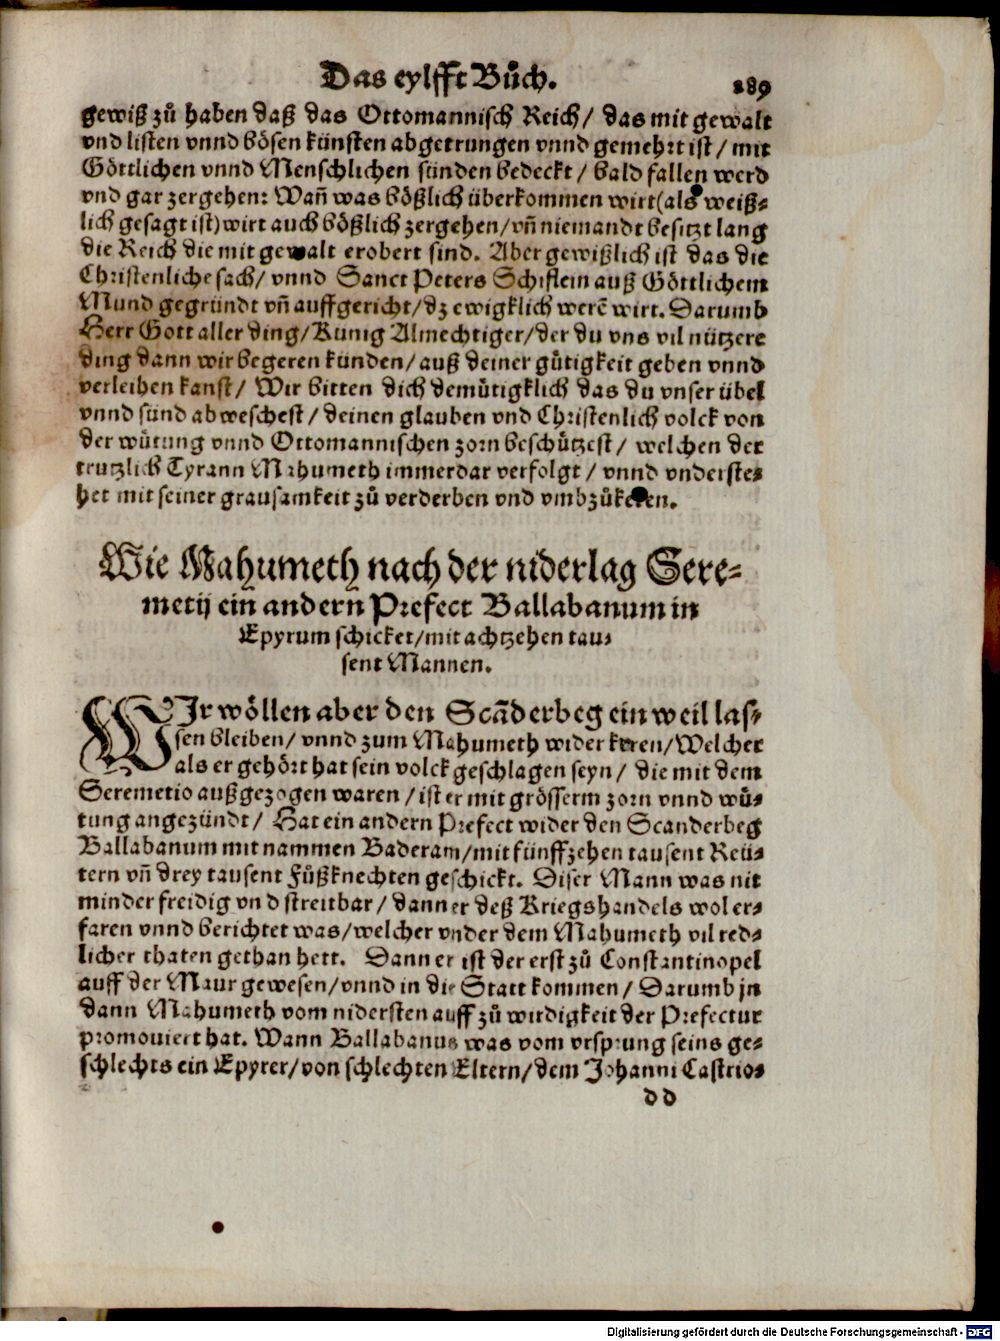 Das eylfft Bůch. 189
gewiß zů haben daß das Ottomannisch Reich / das mit gewalt
vnd listen vnnd bösen künsten abgetrungen vnnd gemehrt ist / mit
Göttlichen vnnd Menschlichen sünden bedeckt / bald fallen werd
vnd gar zergehen: Wañ was bößlich überkommen wirt (als weiß⸗
lich gesagt ist) wirt auch bößlich zergehen / vñ niemandt besitzt lang
die Reich die mit gewalt erobert sind. Aber gewißlich ist das die
Christenliche sach / vnnd Sanct Peters Schiflein auß Göttlichem
Mund gegründt vñ auffgericht / dz ewigklich werẽ wirt. Darumb
Herr Gott aller ding / Künig Almechtiger / der du vns vil nützere
ding dann wir begeren künden / auß deiner gůtigkeit geben vnnd
verleihen kanst / Wir bitten dich demůtigklich das du vnser übel
vnnd sünd abweschest / deinen glauben vnd Christenlich volck von
der wůtung vnnd Ottomannischen zorn beschützest / welchen der
trutzlich Tyrann Mahumeth immerdar verfolgt / vnnd vnderste⸗
het mit seiner grausamkeit zů verderben vnd vmbzůkeren.
Wie Mahumeth nach der niderlag Sere⸗
metij ein andern Prefect Ballabanum in
Epyrum schicket / mit achtzehen tau⸗
sent Mannen.
WIr wöllen aber den Scãderbeg ein weil las⸗
sen bleiben / vnnd zum Mahumeth wider keren / Welcher
als er gehört hat sein volck geschlagen seyn / die mit dem
Seremetio außgezogen waren / ist er mit grösserm zorn vnnd wů⸗
tung angezündt / Hat ein andern Prefect wider den Scanderbeg
Ballabanum mit nammen Baderam / mit fünffzehen tausent Reü⸗
tern vñ drey tausent Fůßknechten geschickt. Diser Mann was nit
minder freidig vnd streitbar / dann er deß Kriegshandels wol er⸗
faren vnnd berichtet was / welcher vnder dem Mahumeth vil red⸗
licher thaten gethan hett. Dann er ist der erst zů Constantinopel
auff der Maur gewesen / vnnd in die Statt kommen / Darumb jn
dann Mahumeth vom nidersten auff zů wirdigkeit der Prefectur
promouiert hat. Wann Ballabanus was vom vrsprung seins ge⸗
schlechts ein Epyrer / von schlechten Eltern / dem Johanni Castrio⸗
dd
Digitalisierung gefördert durch die Deutsche Forschungsgemeinschaft - DFG